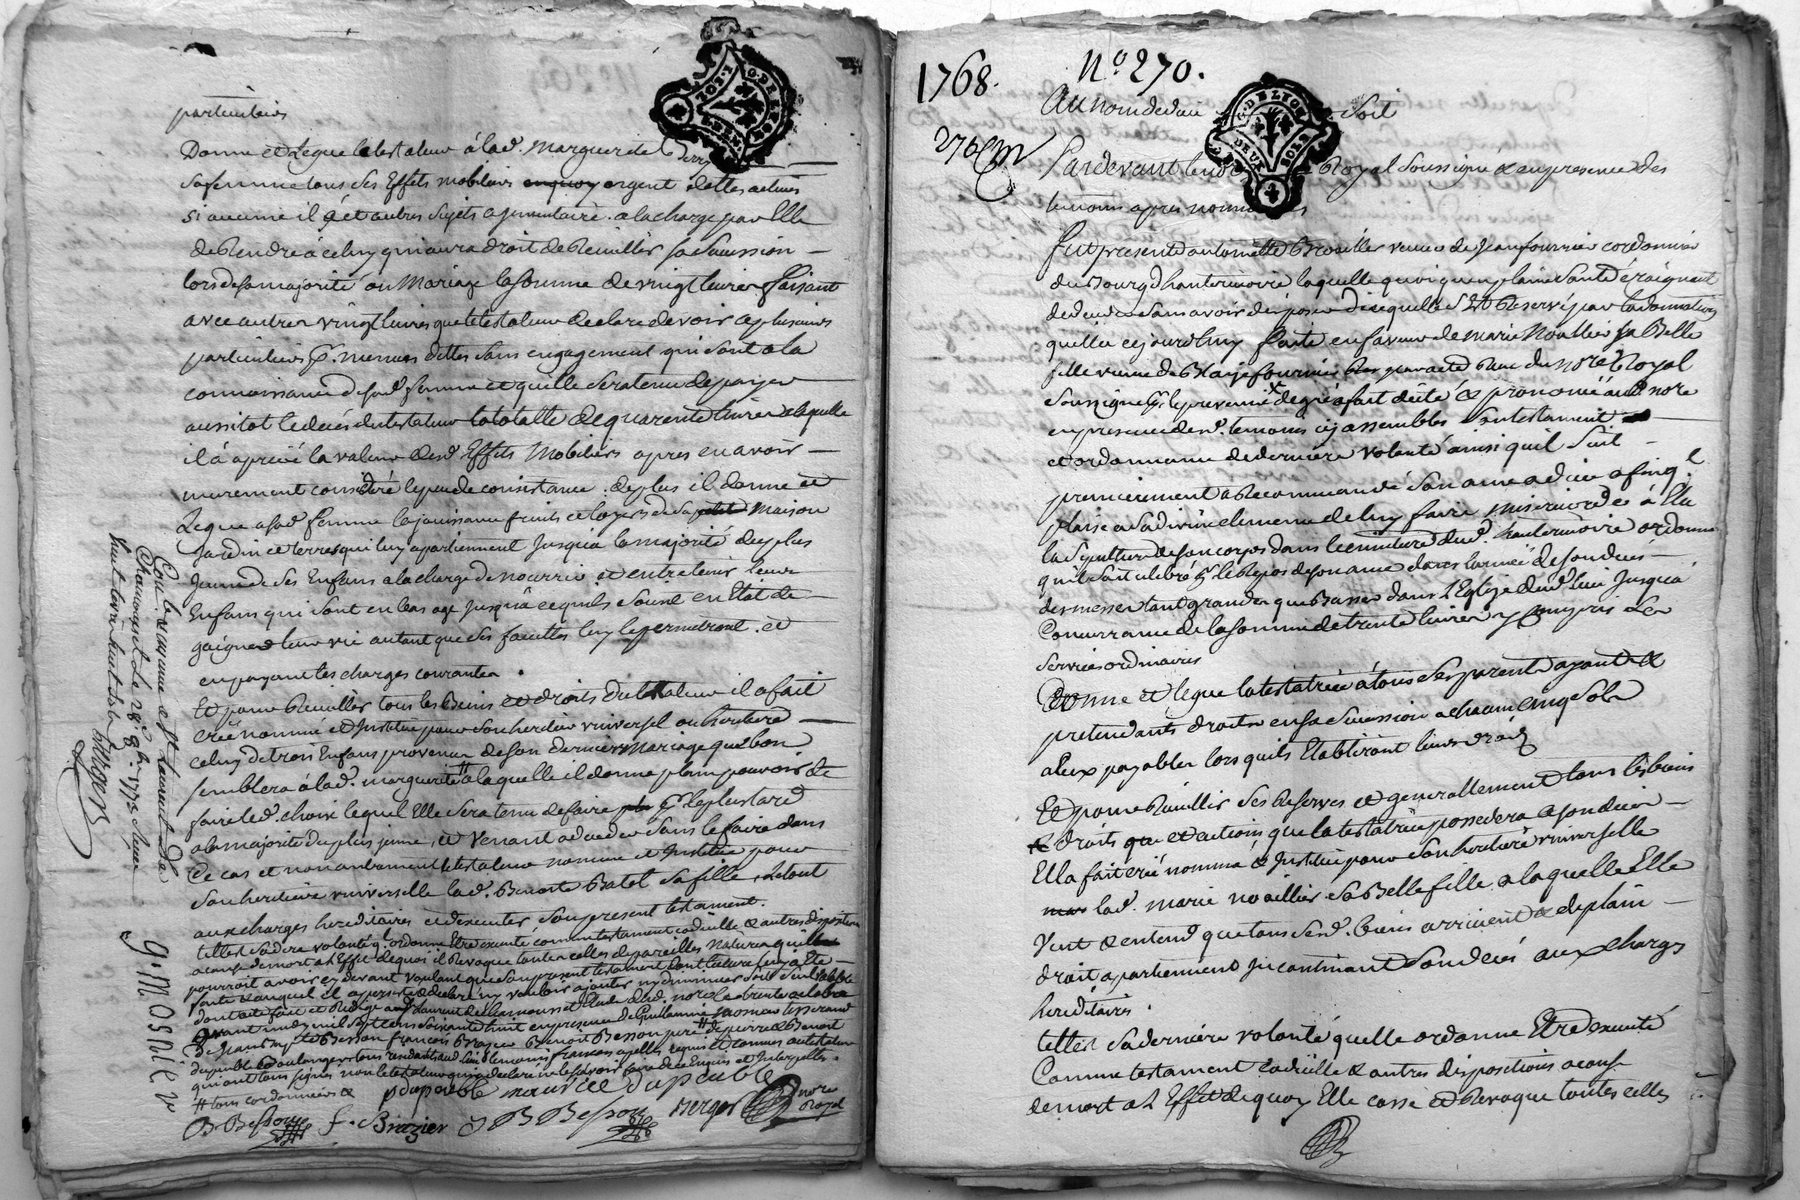 particuliers
Donne et Legue le testateur à lad. Marguerite
sa femme tous ses Effets mobiliers argent dettes actives
si aucune il y a et autres sujets a jnventaire. a la charge par Elle
de Rendre à celuy qui aura droit de Reuillir sa suession —
lors de sa majorité ou Mariage la somme de vingt livres faisant
avec autres vingt livres que le testateur declare devoir a plusieurs
particuliers pr. menues dettes sans engagement qui sont a la
connoissance de sad. femme et quelle sera tenue de payer
aussitot le decès du testateur la totalle de quarente livres a laquelle
il à aprecié la valeur desd. Effets Mobiliers apres en avoir —
murement consideré le peu de consistance. de plus il donne et
Legue a sad. femme la jouissance fruits et loyers de sa maison
jardin et terres qui luy apartiennent jusqu'à la majorité du plus
jeune de ses Enfans a la charge de nourrir et entretenir leurs
Enfans qui sont en bas age jusqu'a ce quils soient en Etat de —
gaigner leur vie autant que ses facultes luy le permetront. et
en payant les charges courantes.
Et pour Reuillir tous les Biens et droits du testateur il a fait
créé nommé et Institué pour son heritier vniversel ou heritiere —
celuy de trois Enfans provenus de son dernier Mariage que bon
semblera à lad. marguerite # a laquelle il donne plain pouvoir de
faire led. choix lequel Elle sera tenue de faire pr. le plus tard
a la majorité du plus jeune, et Venant a deceder sans le faire dans
Ce cas et non autrement le testateur nomme et Institue pour
son heritiere vniverselle lad. Benoite Batol sa fille, le tout
aux charges hereditaires et d'executer son present testament.
telle est sa dre volonté ql. ordonne Etre executé comme testament codicille & autres disposition
a cause de mort a l Effet de quoi il Revoque toutes celles de pareilles Natures quil
pourroit avoir cy devant voulant que son present testament
qui ont tous signés non le testateur qui a declaré ne le savoir faire de ce Enquis et Interpellés.
# tous cordonniers &
Dupeuble maurice dupeuble
B Besson f. Brazier J B Besson Berger nore Royal
Controllé
Chamousset Le 28e 9bre. 1772 Reçu
huit livre huit sols
gilmosnier
1768. No. 270.
270em
Au nom de dieu soit
Pardevant le no Royal soussigné & en presence des
temoins apres nommés
fut presente antoinette Brouilles veuve de jean fournier cordonnier
du Bourg d'hauterivoire laquelle quoique en plaine santé craignant
de deceder sans avoir disposer de ce quelle s'est Reservé par la donnation
quelle a cejourdhuy faite en faveur de marie Noallier sa Belle
fille veuve de Blaize fournier par acte Reçu du nore Royal
soussigné de gré a fait dicté & prononcé aud nore
en presence desd. temoins cy assemblés son testament
et ordonnance de derniere volonté ainsi quil suit —
premierement a Recommandé son ame a dieu afin ql
plaise a sa divine clemence de luy faire misericorde à Elu
la sepulture de son corps dans le cimetiere dud. hauterivoire ordonne
qu'il soit celebré pr. le Repos de son ame dans lannée de son deces —
des messes tant grandes que Basses dans l'Eglise dud. lieu jusqu'à
Concurrance de la somme de trente livres y compris les
services ordinaires
Donne et legue la testatrice à tous ses parents ayant &
pretendants droits en sa suession a chacun cinq sols
a Eux payables lors quils Etabliront leurs droits
Et pour Reuillir ses Reserves et generallement tous les biens
droits et actions que la testatrice possedera a son deces —
Ella fait créé nommé & Institué pour son heritiere vniverselle
lad. marie noaillier sa Belle fille a laquelle Elle
Veut & entend que tous sesd. biens arrivent & de plain —
droit apartiennent jncontinant son decés aux charges
hereditaires.
telle est sa derniere volonté quelle ordonne Etre executé
Comme testament codicille & autres dispositions a cause
de mort a l Effet de quoy Elle casse et Revoque toutes celles